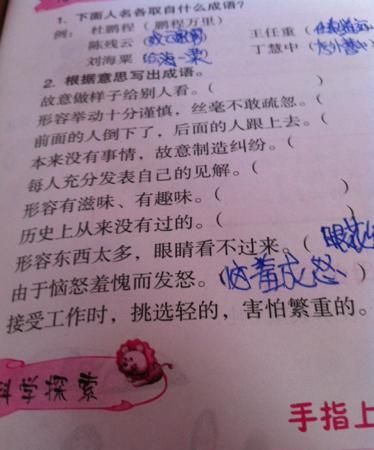 1. 下面人名各取自什么成语?
例: 杜鹏程 (鹏程万里) 王任重 (任重道远
陈残云 ( ) 丁慧中 (
刘海粟 (沧海一粟)
2. 根据意思写出成语。
故意做样子给别人看。( )
形容举动十分谨慎,丝毫不敢疏忽。( )
前面的人倒下了,后面的人跟上去。(
本来没有事情,故意制造纠纷。(
每人充分发表自己的见解。( )
形容有滋味、有趣味。( )
历史上从来没有过的。(
形容东西太多,眼睛看不过来。(眼花
由于恼怒羞愧而发怒。(恼羞成怒)
接受工作时,挑选轻的,害怕繁重的。
科学探索
手指上